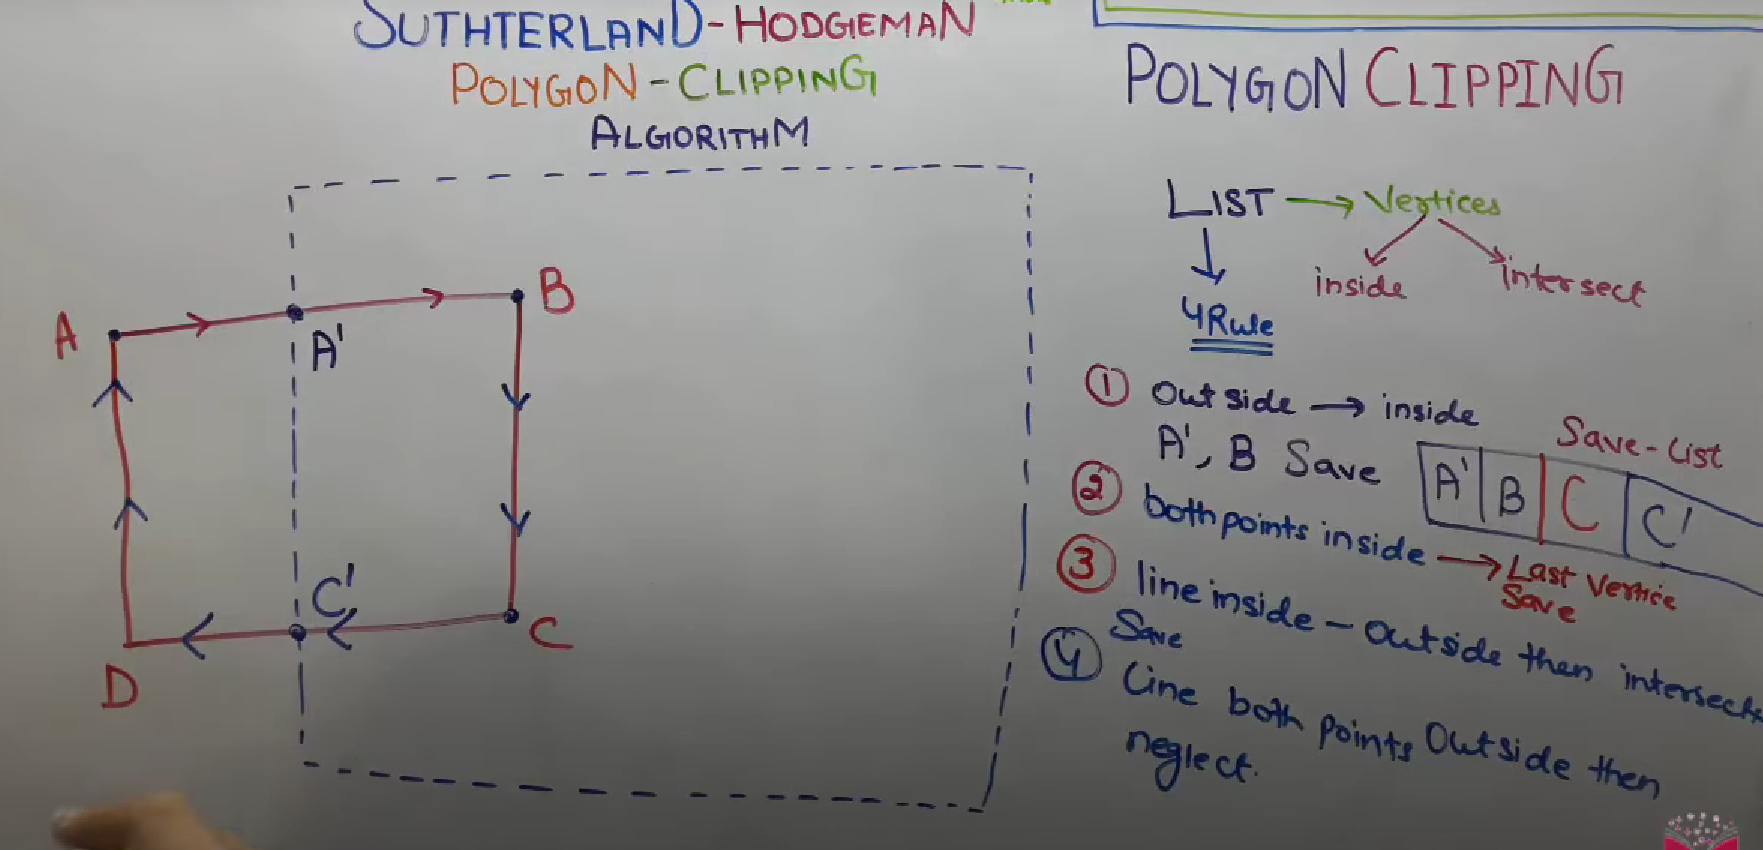 SUTHTERLAND-HODGEMAN
POLYGON-CLIPPING
ALGORITHM
A
A'
B
C'
C
D
POLYGON CLIPPING
LIST → Vertices
inside
intersect
4Rule
① Outside → inside
A', B Save
Save-List
A' B C C'
② both points inside → Last Vertice
Save
③ line inside - Outside then intersects
Save
④ Line both points Outside then
neglect.